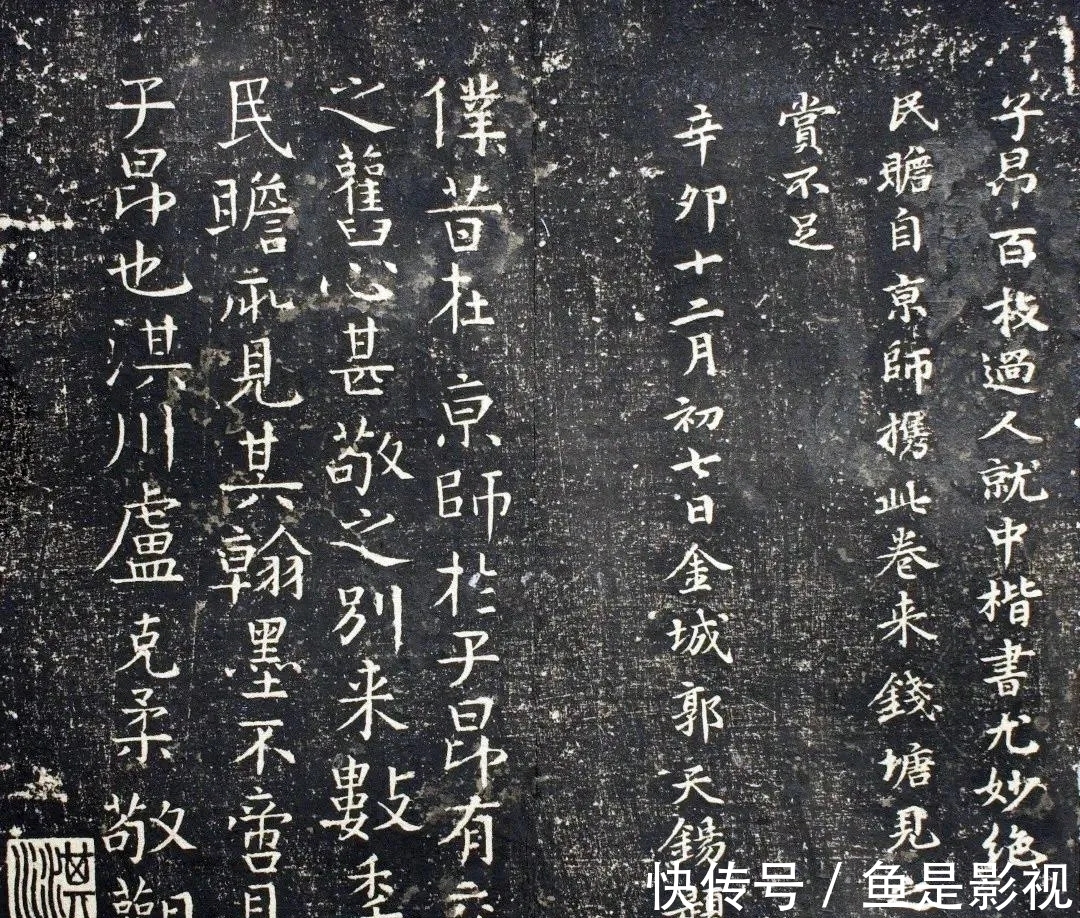 子昂百枝過人就中楷書尤妙絶
民瞻自京師攜此卷來錢塘見
賞不足
辛卯十二月初七日金城郭天錫題
僕昔在京師於子昂有六
之舊心甚敬之別来數季
民瞻示見其翰墨不啻見
子昂也淇川盧克柔敬觀
快传号/鱼是影视